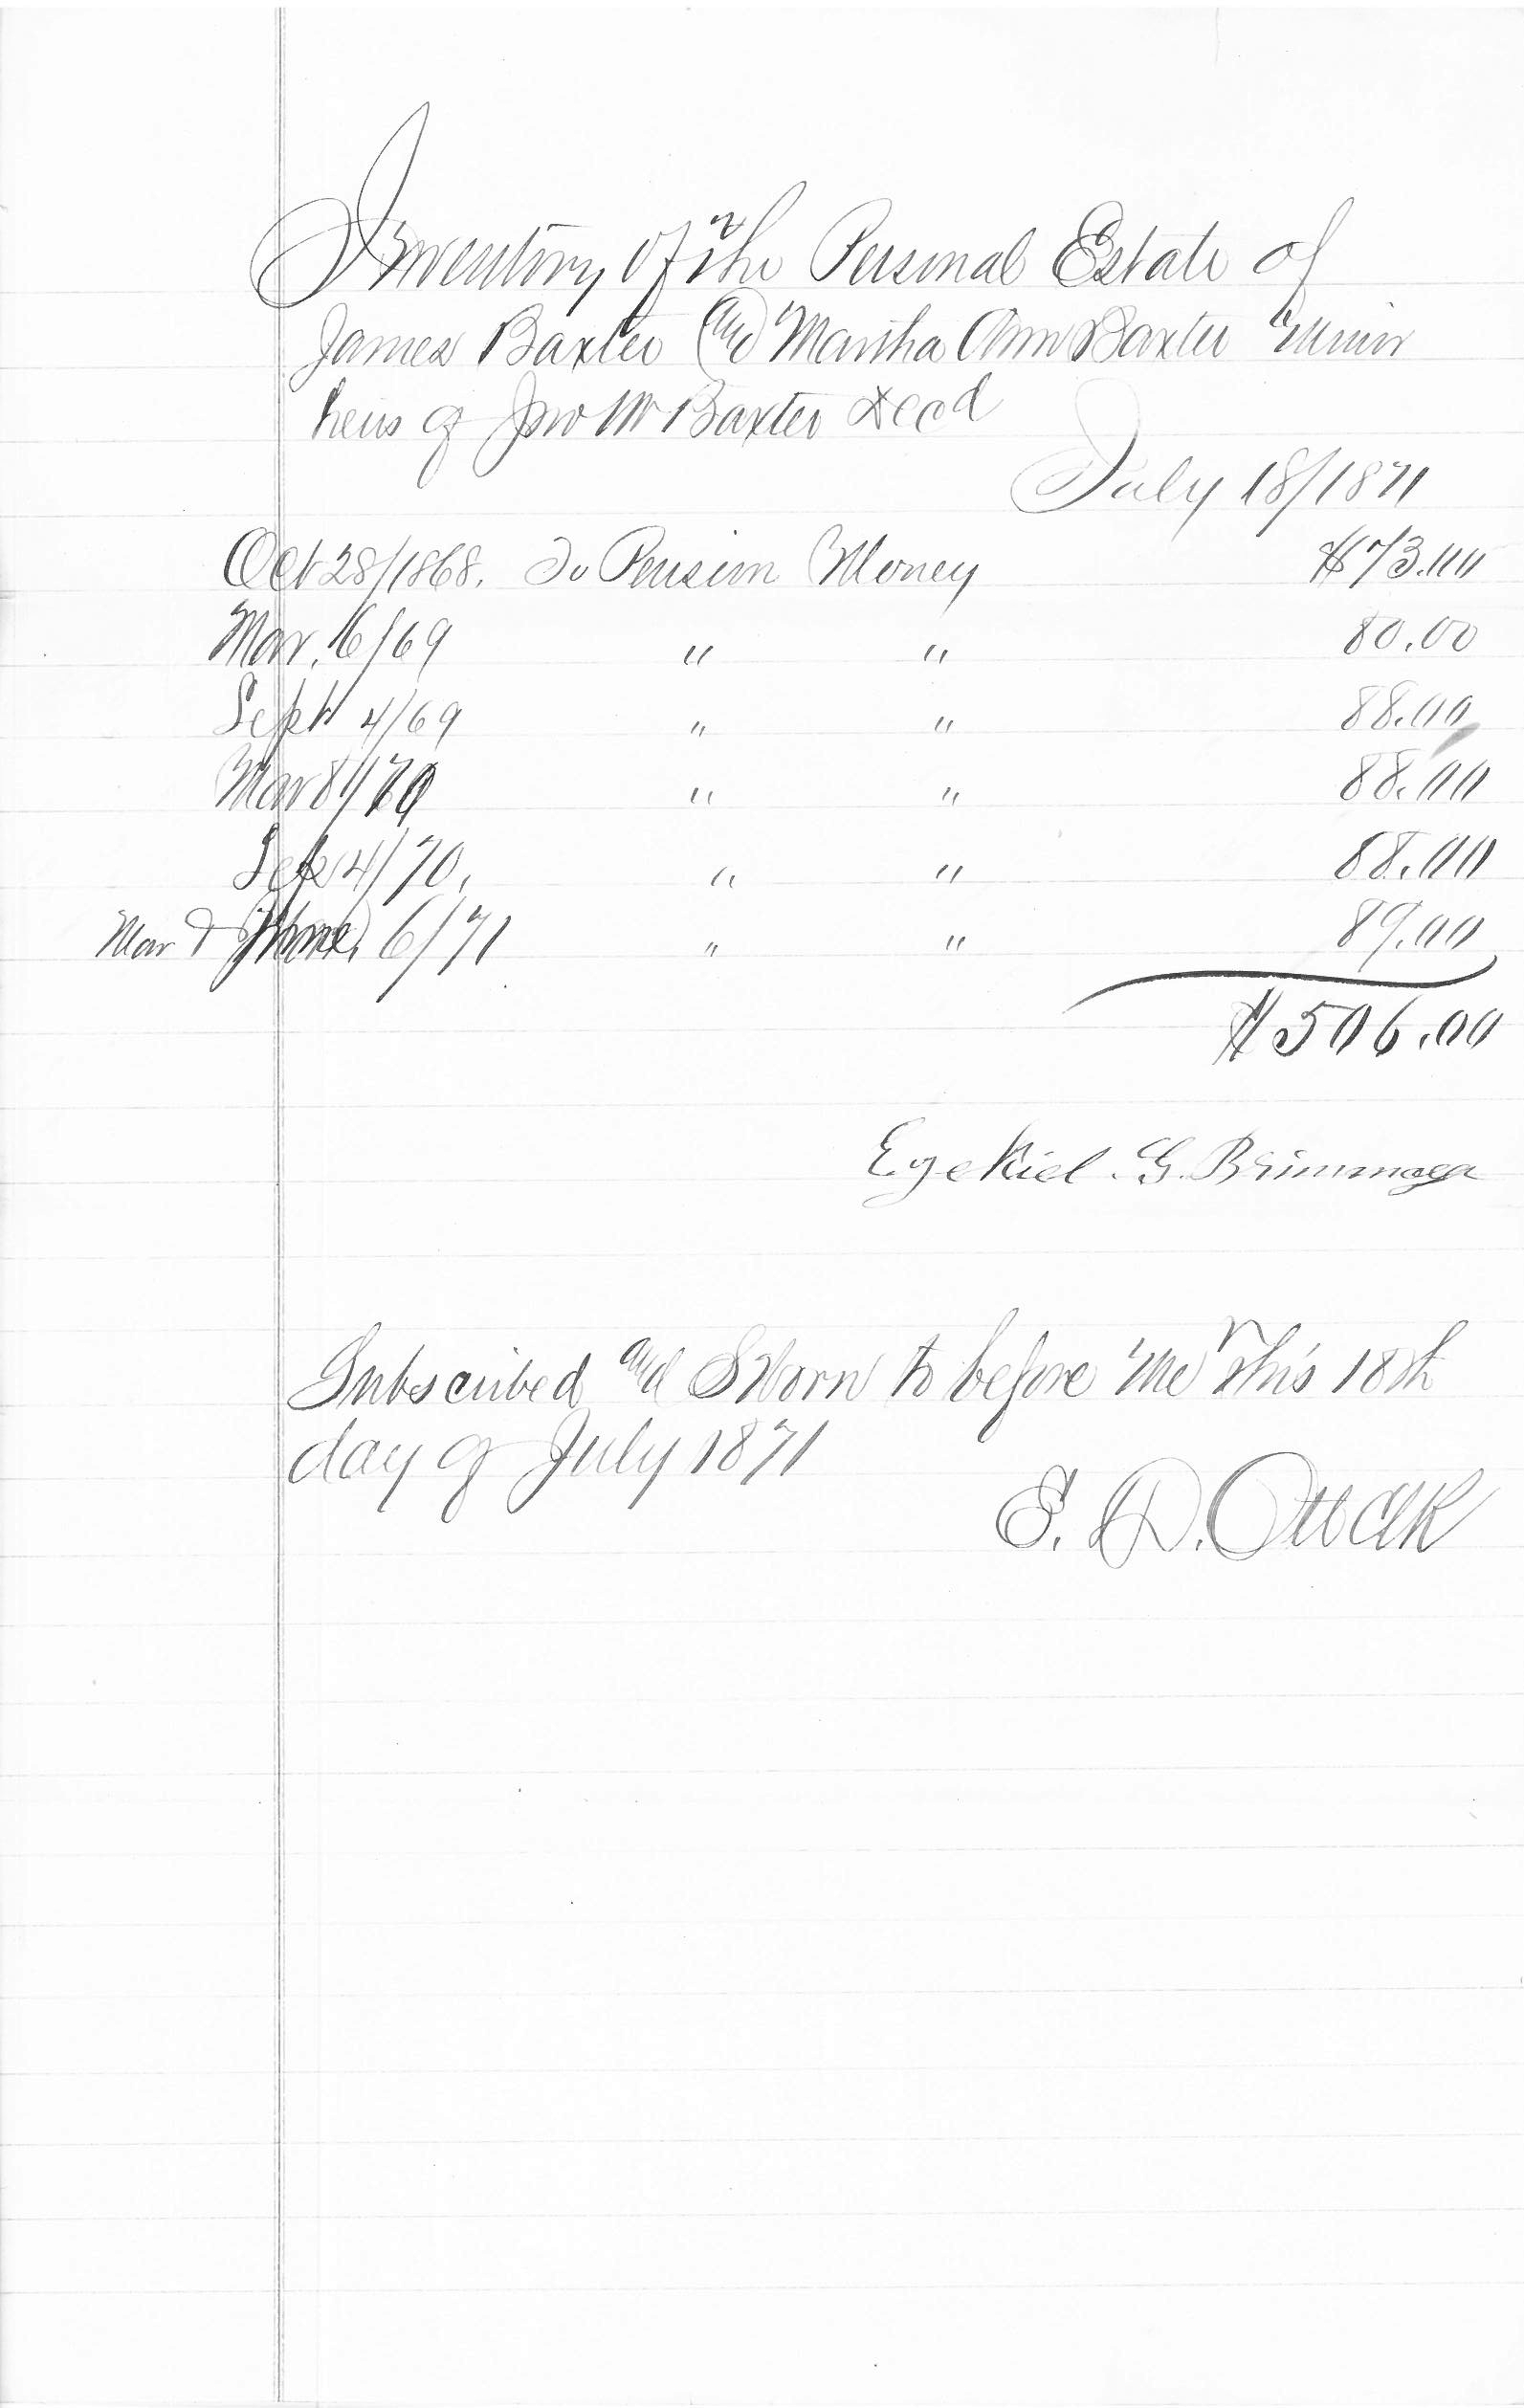 Inventory of the Personal Estate of
James Baxter and Martha Ann Baxter Minor
heirs of Jno W Baxter Decd
July 18/1871
Oct 28/1868. To Pension Money $73.00
Mar. 6/69 " " 80.00
Sept 4/69 " " 88.00
Mar 8/70 " " 88.00
Sep 4/70, " " 88.00
Mar & June 6/71 " " 89.00
$506.00
Ezekiel G. Brimmager
Subscribed and Sworn to before me this 18th
day of July 1871
E. D. Ott Clk